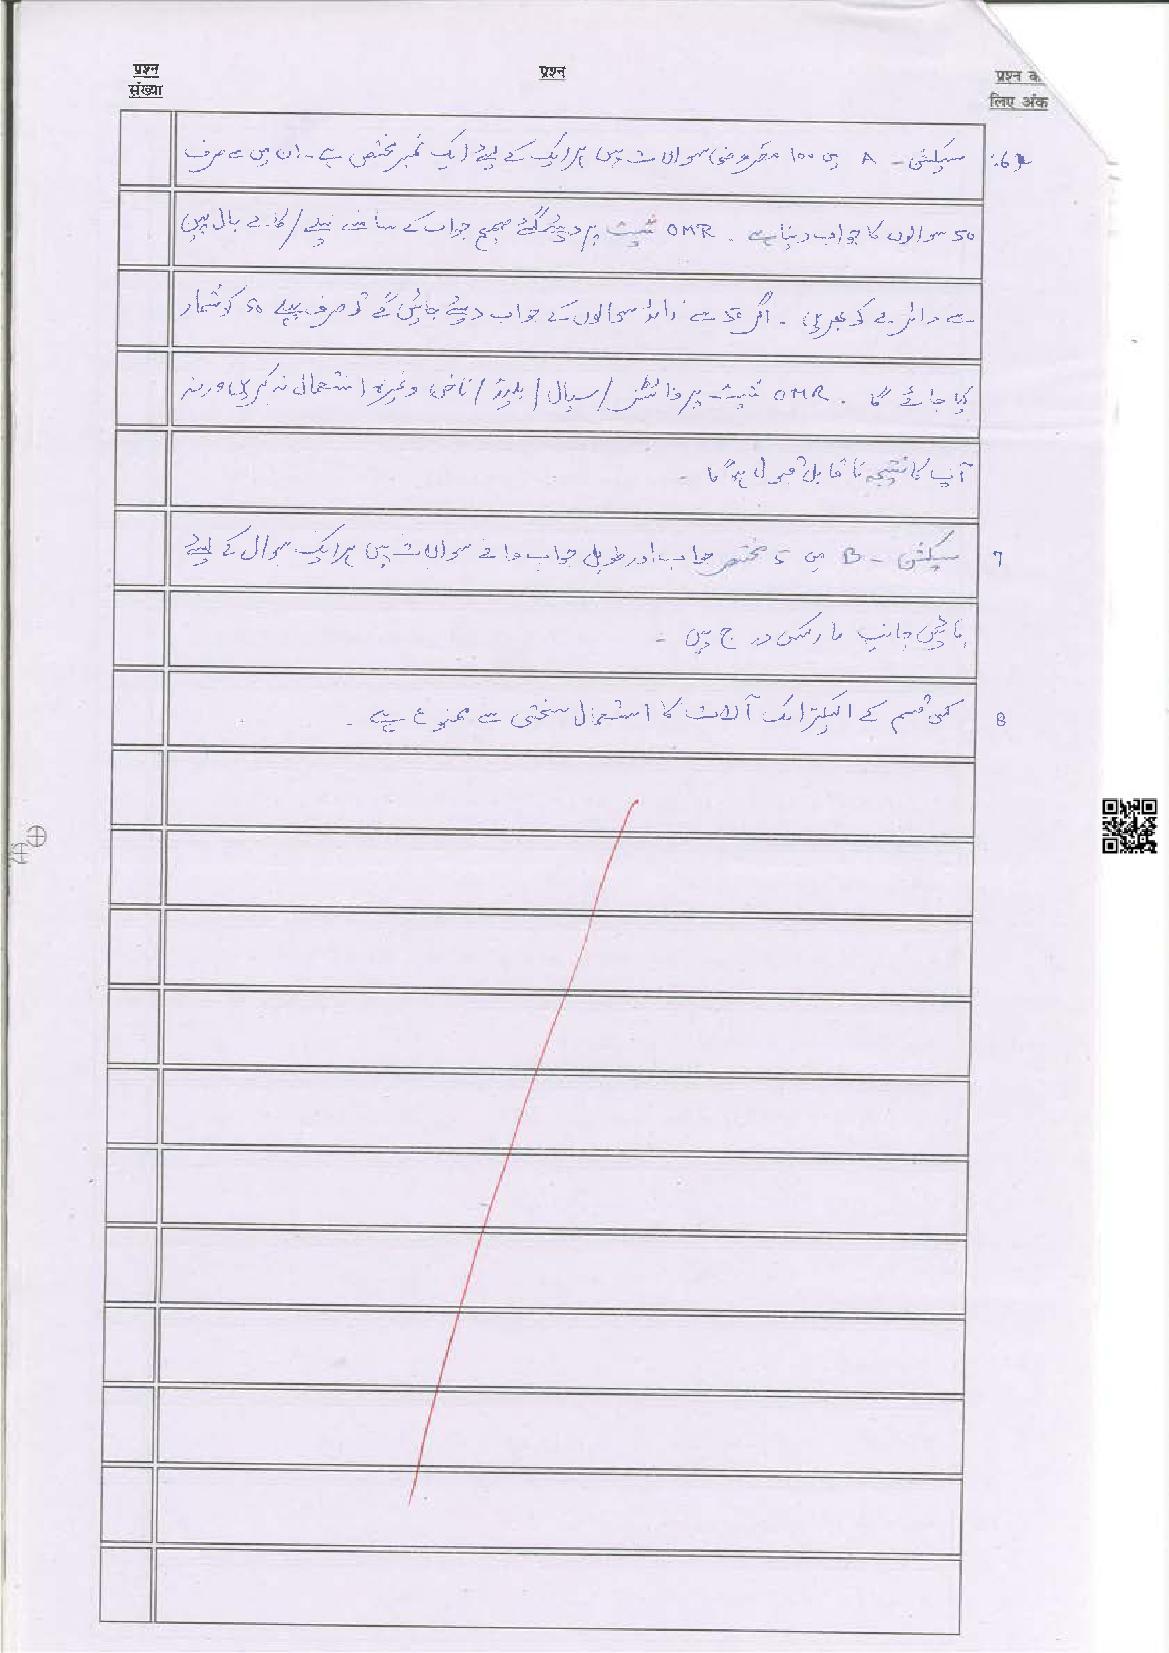 प्रश्न संख्या
प्रश्न
प्रश्न के लिए अंक
6: سیکشن - A میں 100 معروضی سوالات ہیں ہر ایک کے لیے ایک نمبر مختص ہے - ان میں سے صرف
50 سوالوں کا جواب دینا ہے ۔ OMR شیٹ پر دیئے گئے صحیح جواب کے سامنے نیلے / کالے بال پین
سے دائرے کو بھریں ۔ اگر 50 سے زائد سوالوں کے جواب دیئے جائیں گے تو صرف پہلے 50 کو شمار
کیا جائے گا ۔ OMR شیٹ پر وائٹنر / سیال / بلیڈ / ناخن وغیرہ استعمال نہ کریں ورنہ
آپ کا نتیجہ ناقابل قبول ہوگا -
7 سیکشن - B میں 5 مختصر جواب اور طویل جواب والے سوالات ہیں ہر ایک سوال کے لیے
بائیں جانب مارکس درج ہیں -
8 کسی قسم کے الیکٹرانک آلات کا استعمال سختی سے ممنوع ہے ۔